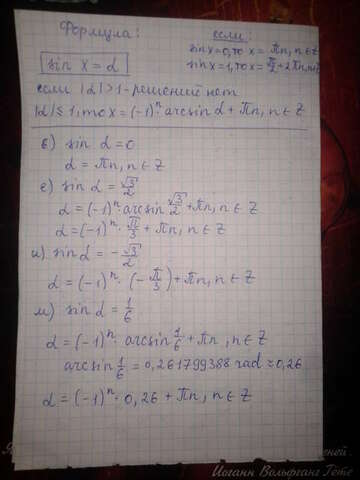 Формула:
если
sin x = 0, то x = πn, n ∈ Z
sin x = 1, то x = π/2 + 2πn, n ∈ Z
sin x = α
если |α| > 1 - решений нет
|α| ≤ 1, то x = (-1)ⁿ · arcsin α + πn, n ∈ Z
в) sin α = 0
α = πn, n ∈ Z
е) sin α = √3/2
α = (-1)ⁿ · arcsin √3/2 + πn, n ∈ Z
α = (-1)ⁿ · π/3 + πn, n ∈ Z
и) sin α = - √3/2
α = (-1)ⁿ · (- π/3) + πn, n ∈ Z
м) sin α = 1/6
α = (-1)ⁿ · arcsin 1/6 + πn, n ∈ Z
arcsin 1/6 = 0,261799388 rad ≈ 0,26
α = (-1)ⁿ · 0,26 + πn, n ∈ Z
Иоганн Вольфганг Гете